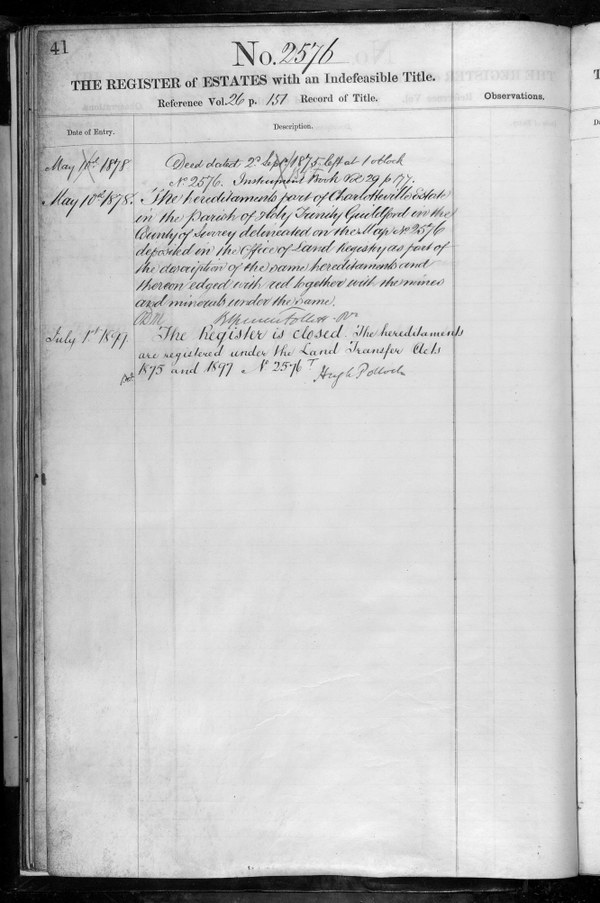 41
No. 2576
THE REGISTER of ESTATES with an Indefeasible Title.
Reference Vol. 26 p. 151 Record of Title.
Observations.
Date of Entry.
Description.
May 10th 1878
Deed dated 2d Sept 1875 left at 1 oClock
No 2576. Instrument Book Vol 29 p 177.
May 10th 1878.
The hereditaments part of Charlotteville Estate
in the Parish of Holy Trinity Guildford in the
County of Surrey delineated on the Map No 2576
deposited in the Office of Land Registry as part of
the description of the same hereditaments and
thereon edged with red together with the mines
and minerals under the same.
Follett
July 1st 1899.
The Register is closed. The hereditaments
are registered under the Land Transfer Acts
1875 and 1897 No 2576
Hugh Pollock